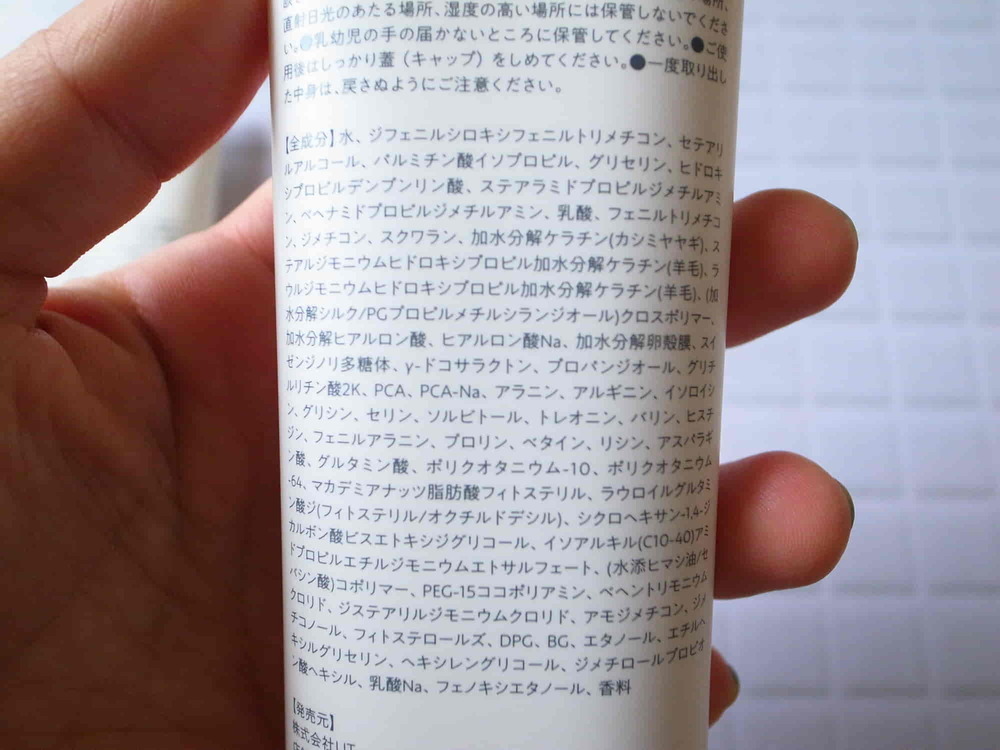 場所、
直射日光のあたる場所、湿度の高い場所には保管しないでくださ
い。●乳幼児の手の届かないところに保管してください。●ご使
用後はしっかり蓋（キャップ）をしめてください。●一度取り出し
た中身は、戻さぬようにご注意ください。
【全成分】水、ジフェニルシロキシフェニルトリメチコン、セテアリ
ルアルコール、パルミチン酸イソプロピル、グリセリン、ヒドロキ
シプロピルデンプンリン酸、ステアラミドプロピルジメチルアミ
ン、ベヘナミドプロピルジメチルアミン、乳酸、フェニルトリメチコ
ン、ジメチコン、スクワラン、加水分解ケラチン(カシミヤヤギ)、ス
テアルジモニウムヒドロキシプロピル加水分解ケラチン(羊毛)、ラ
ウルジモニウムヒドロキシプロピル加水分解ケラチン(羊毛)、(加
水分解シルク/PGプロピルメチルシランジオール)クロスポリマー、
加水分解ヒアルロン酸、ヒアルロン酸Na、加水分解卵殻膜、スイ
ゼンジノリ多糖体、γ-ドコサラクトン、プロパンジオール、グリチ
ルリチン酸2K、PCA、PCA-Na、アラニン、アルギニン、イソロイシ
ン、グリシン、セリン、ソルビトール、トレオニン、バリン、ヒスチ
ジン、フェニルアラニン、プロリン、ベタイン、リシン、アスパラギ
ン酸、グルタミン酸、ポリクオタニウム-10、ポリクオタニウム
-64、マカデミアナッツ脂肪酸フィトステリル、ラウロイルグルタミ
ン酸ジ(フィトステリル/オクチルドデシル)、シクロヘキサン-1,4-ジ
カルボン酸ビスエトキシジグリコール、イソアルキル(C10-40)アミ
ドプロピルエチルジモニウムエトサルフェート、(水添ヒマシ油/セ
バシン酸)コポリマー、PEG-15ココポリアミン、ベヘントリモニウム
クロリド、ジステアリルジモニウムクロリド、アモジメチコン、ジメ
チコノール、フィトステロールズ、DPG、BG、エタノール、エチルヘ
キシルグリセリン、ヘキシレングリコール、ジメチロールプロピオ
ン酸ヘキシル、乳酸Na、フェノキシエタノール、香料
【発売元】
株式会社LIT